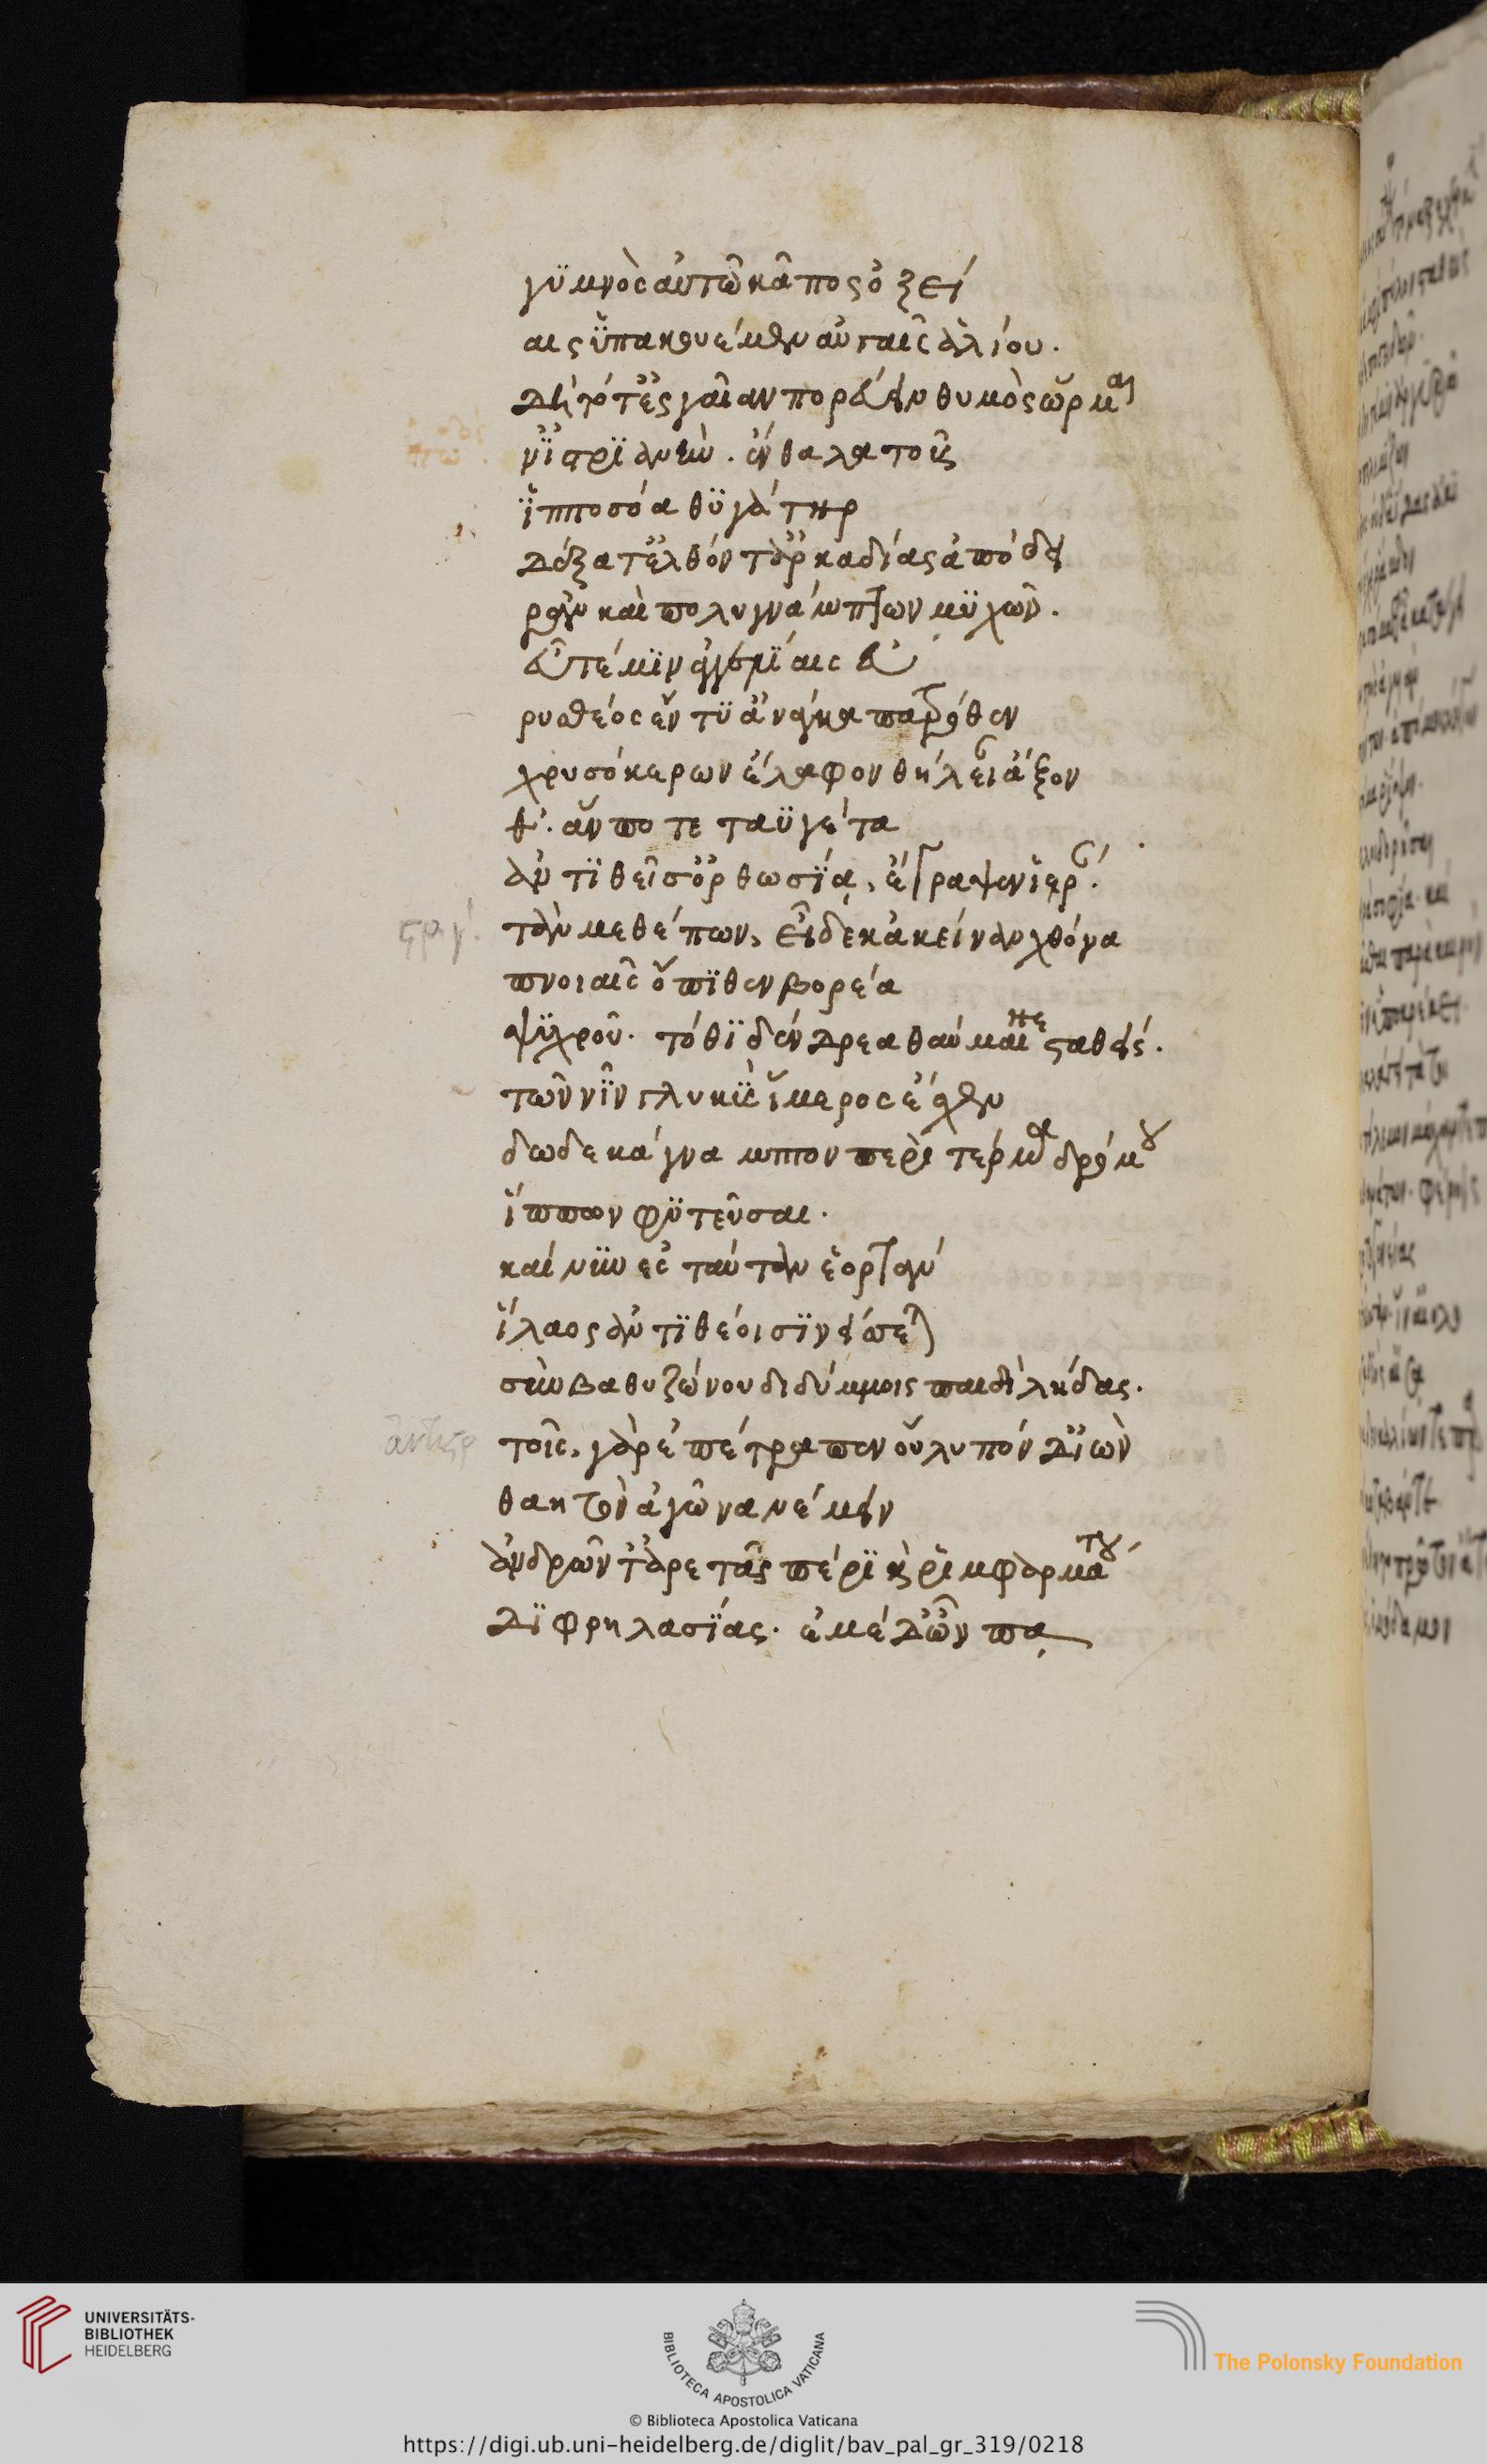 γϋμνὸς αὐτῶ κᾶπος ὀξεί
αις ὑπακουέμεν αὐγαῖς ἁλίου.
Δὴ τότ' ἐς γαῖαν πορεύειν θυμὸς ὥρμαι
ν' ἰστρϊανὰν. ἔνθα λατοῦς
ἱπποσόα θϋγάτηρ
Δέξατ' ἐλθόντ' ἀρκαδίας ἀπὸ δει
ρᾶν καὶ πολυγνάμπτων μϋχῶν.
εὖτέ μϊν ἀγγελίαις εὐ
ρυσθέος ἔντϋ ἀνάγκα πατρόθεν
χρυσόκερων ἔλαφον θήλειαν ἄξον
θ'. ἅν ποτε ταϋγέτα
ἀντϊθεῖσ' ὀρθωσίᾳ, ἔγραψεν ἱεράν.
στρ γ΄. τὰν μεθέπων, εἶδε κἀκείναν χθόνα
πνοιαῖς ὄπϊθεν βορέα
ψϋχροῦ. τόθϊ δένδρεα θαύμαινε σταθείς.
τῶν νϊν γλυκὺς ἵμερος ἔσχεν
δωδεκάγναμπτον περὶ τέρμα δρόμου
ἵππων φϋτεῦσαι.
καί νϋν ἐς ταύταν ἑορτάν
ἵλαος ἀντϊθέοισϊν
σὺν βαθυζώνου διδύμοις παισὶ λήδας.
ἀντιστρ τοῖς, γὰρ ἐπέτραπεν οὔλυπόν Δ' ἰὼν
θαητὸν ἀγῶνα νέμειν
ἀνδρῶν τ' ἀρετᾶς πέρϊ καὶ ῥιμφαρμάτου
Δϊφρηλασίας. ἐμέ Δ' ὦν πᾳ
UNIVERSITÄTS-
BIBLIOTHEK
HEIDELBERG
BIBLIOTECA APOSTOLICA VATICANA
The Polonsky Foundation
© Biblioteca Apostolica Vaticana
https://digi.ub.uni-heidelberg.de/diglit/bav_pal_gr_319/0218